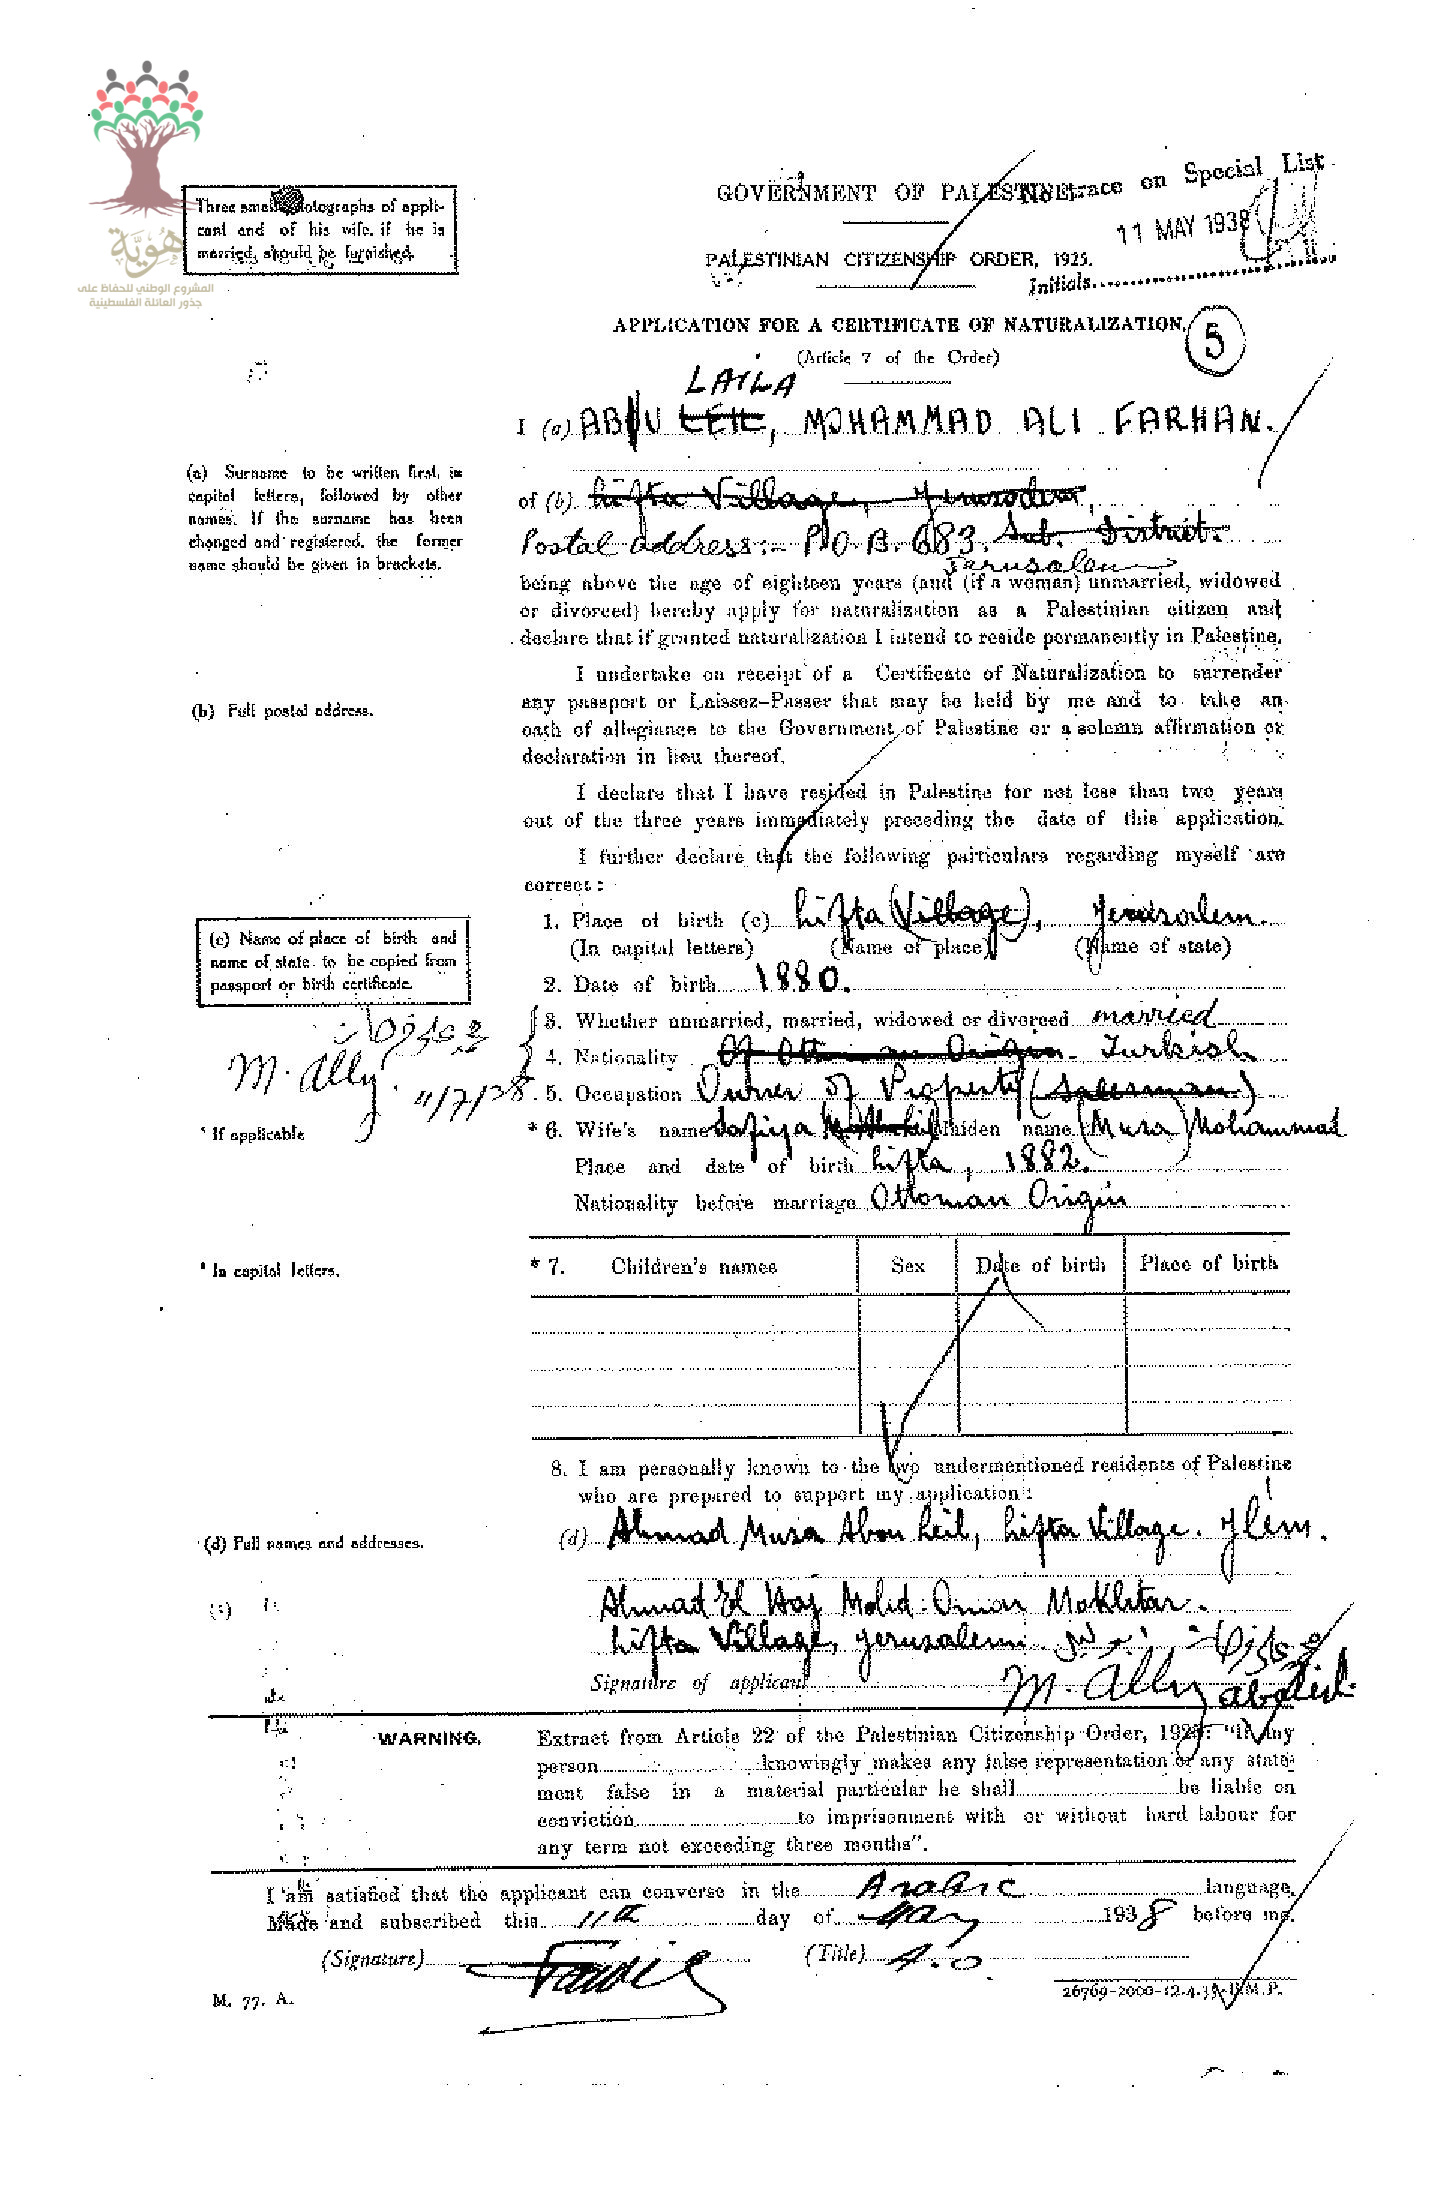 هُوِيَّة
المشروع الوطني للحفاظ على
جذور العائلة الفلسطينية
Three small photographs of appli-
cant and of his wife, if he is
married, should be furnished.
GOVERNMENT OF PALESTINE.
No trace on Special List
11 MAY 1938
Initials
PALESTINIAN CITIZENSHIP ORDER, 1925.
APPLICATION FOR A CERTIFICATE OF NATURALIZATION.
5
(Article 7 of the Order)
LAILA
I (a) ABOU LEIL, MOHAMMAD ALI FARHAN.
(a) Surname to be written first, in
capital letters, followed by other
names. If the surname has been
changed and registered, the former
name should be given in brackets.
of (b) Lifta Village, Jerusalem,
Postal address:- P.O.B. 683. Sub. District.
Jerusalem
being above the age of eighteen years (and (if a woman) unmarried, widowed
or divorced) hereby apply for naturalization as a Palestinian citizen and
declare that if granted naturalization I intend to reside permanently in Palestine.
I undertake on receipt of a Certificate of Naturalization to surrender
any passport or Laissez-Passer that may be held by me and to take an
oath of allegiance to the Government of Palestine or a solemn affirmation or
declaration in lieu thereof.
(b) Full postal address.
I declare that I have resided in Palestine for not less than two years
out of the three years immediately preceding the date of this application.
I further declare that the following particulars regarding myself are
correct:
1. Place of birth (c) Lifta (Village), Jerusalem.
(In capital letters) (Name of place) (Name of state)
(c) Name of place of birth and
name of state to be copied from
passport or birth certificate.
2. Date of birth 1880.
3. Whether unmarried, married, widowed or divorced married
4. Nationality Of Ottoman Origin. Turkish
M. Ally.
11/7/38
5. Occupation Owner of Property (Salesman)
* If applicable
* 6. Wife's name Safiya Maiden name (Musa) Mohammad
Place and date of birth Lifta, 1882.
Nationality before marriage Ottoman Origin
* In capital letters.
* 7. Children's names Sex Date of birth Place of birth
8. I am personally known to the two undermentioned residents of Palestine
who are prepared to support my application:
(d) Full names and addresses.
(d) Ahmad Musa Abou Leil, Lifta Village. Jlem.
Ahmad El Haj Mohd. Omar Mokhtar.
Lifta Village, Jerusalem.
Signature of applicant M. Ally Aboleil.
WARNING.
Extract from Article 22 of the Palestinian Citizenship Order, 1925: "If any
person knowingly makes any false representation or any state-
ment false in a material particular he shall be liable on
conviction to imprisonment with or without hard labour for
any term not exceeding three months".
I am satisfied that the applicant can converse in the Arabic language.
Made and subscribed this 11th day of May 1938 before me.
(Signature) (Title) A.O.
M. 77. A.